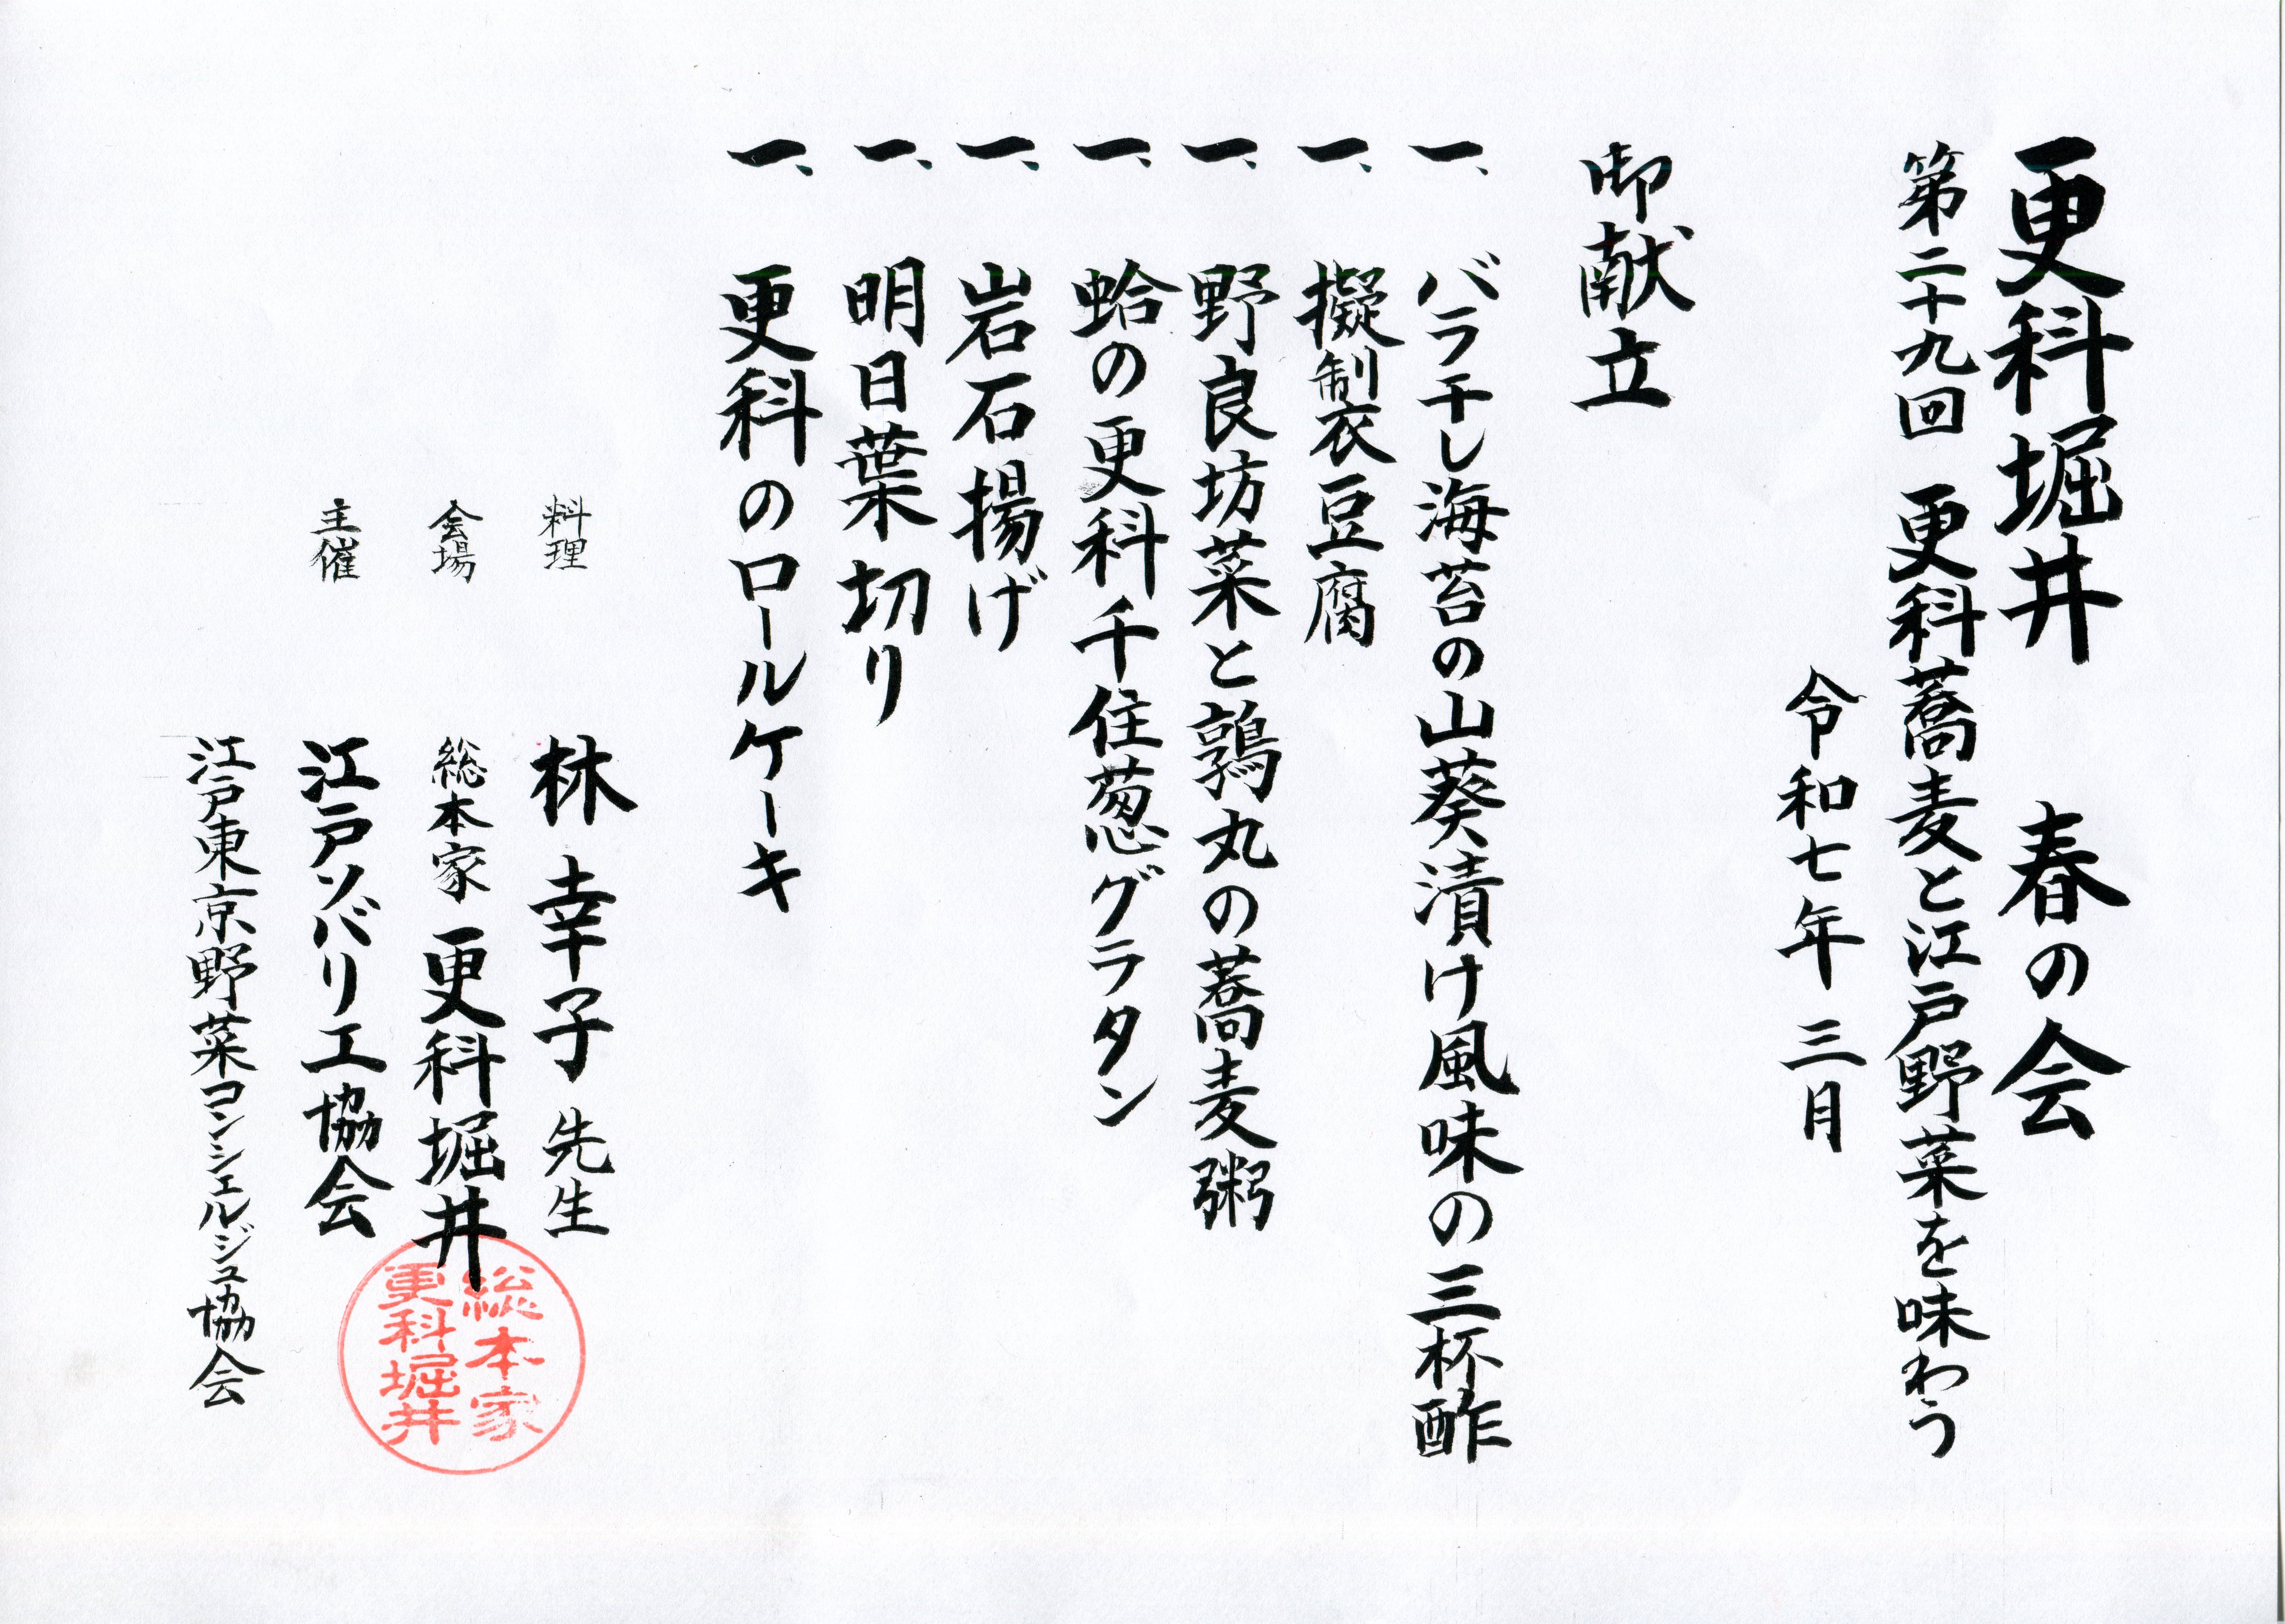 更科堀井 春の会
第二十九回 更科蕎麦と江戸野菜を味わう
令和七年 三月
御献立
一、バラ干し海苔の山葵漬け風味の三杯酢
一、擬制衣豆腐
一、野良坊菜と鶉丸の蕎麦粥
一、蛤の更科千住葱グラタン
一、岩石揚げ
一、明日葉切り
一、更科のロールケーキ
料理 林 幸子 先生
会場 総本家 更科堀井
主催 江戸ソバリエ協会
江戸東京野菜コンシェルジュ協会
総本家
更科堀井